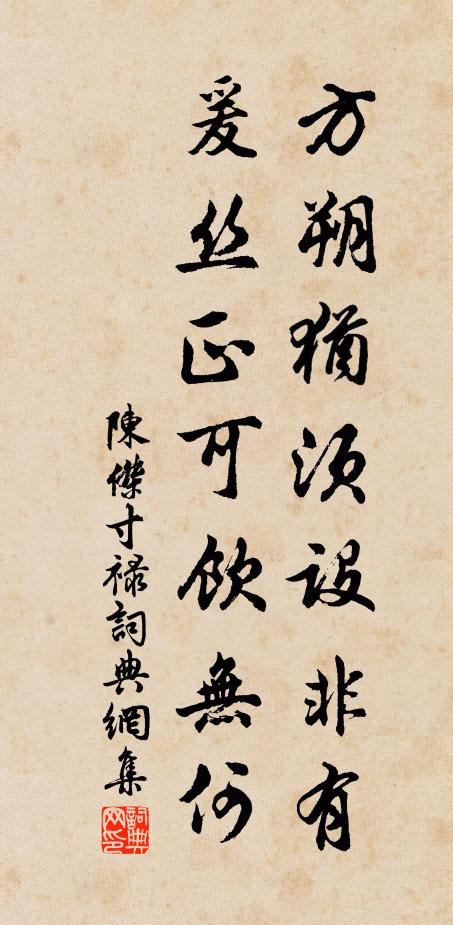 方朔猶須設非有
爰丝正可飲無何
陳傑寸禄詞典網集
詞典网印